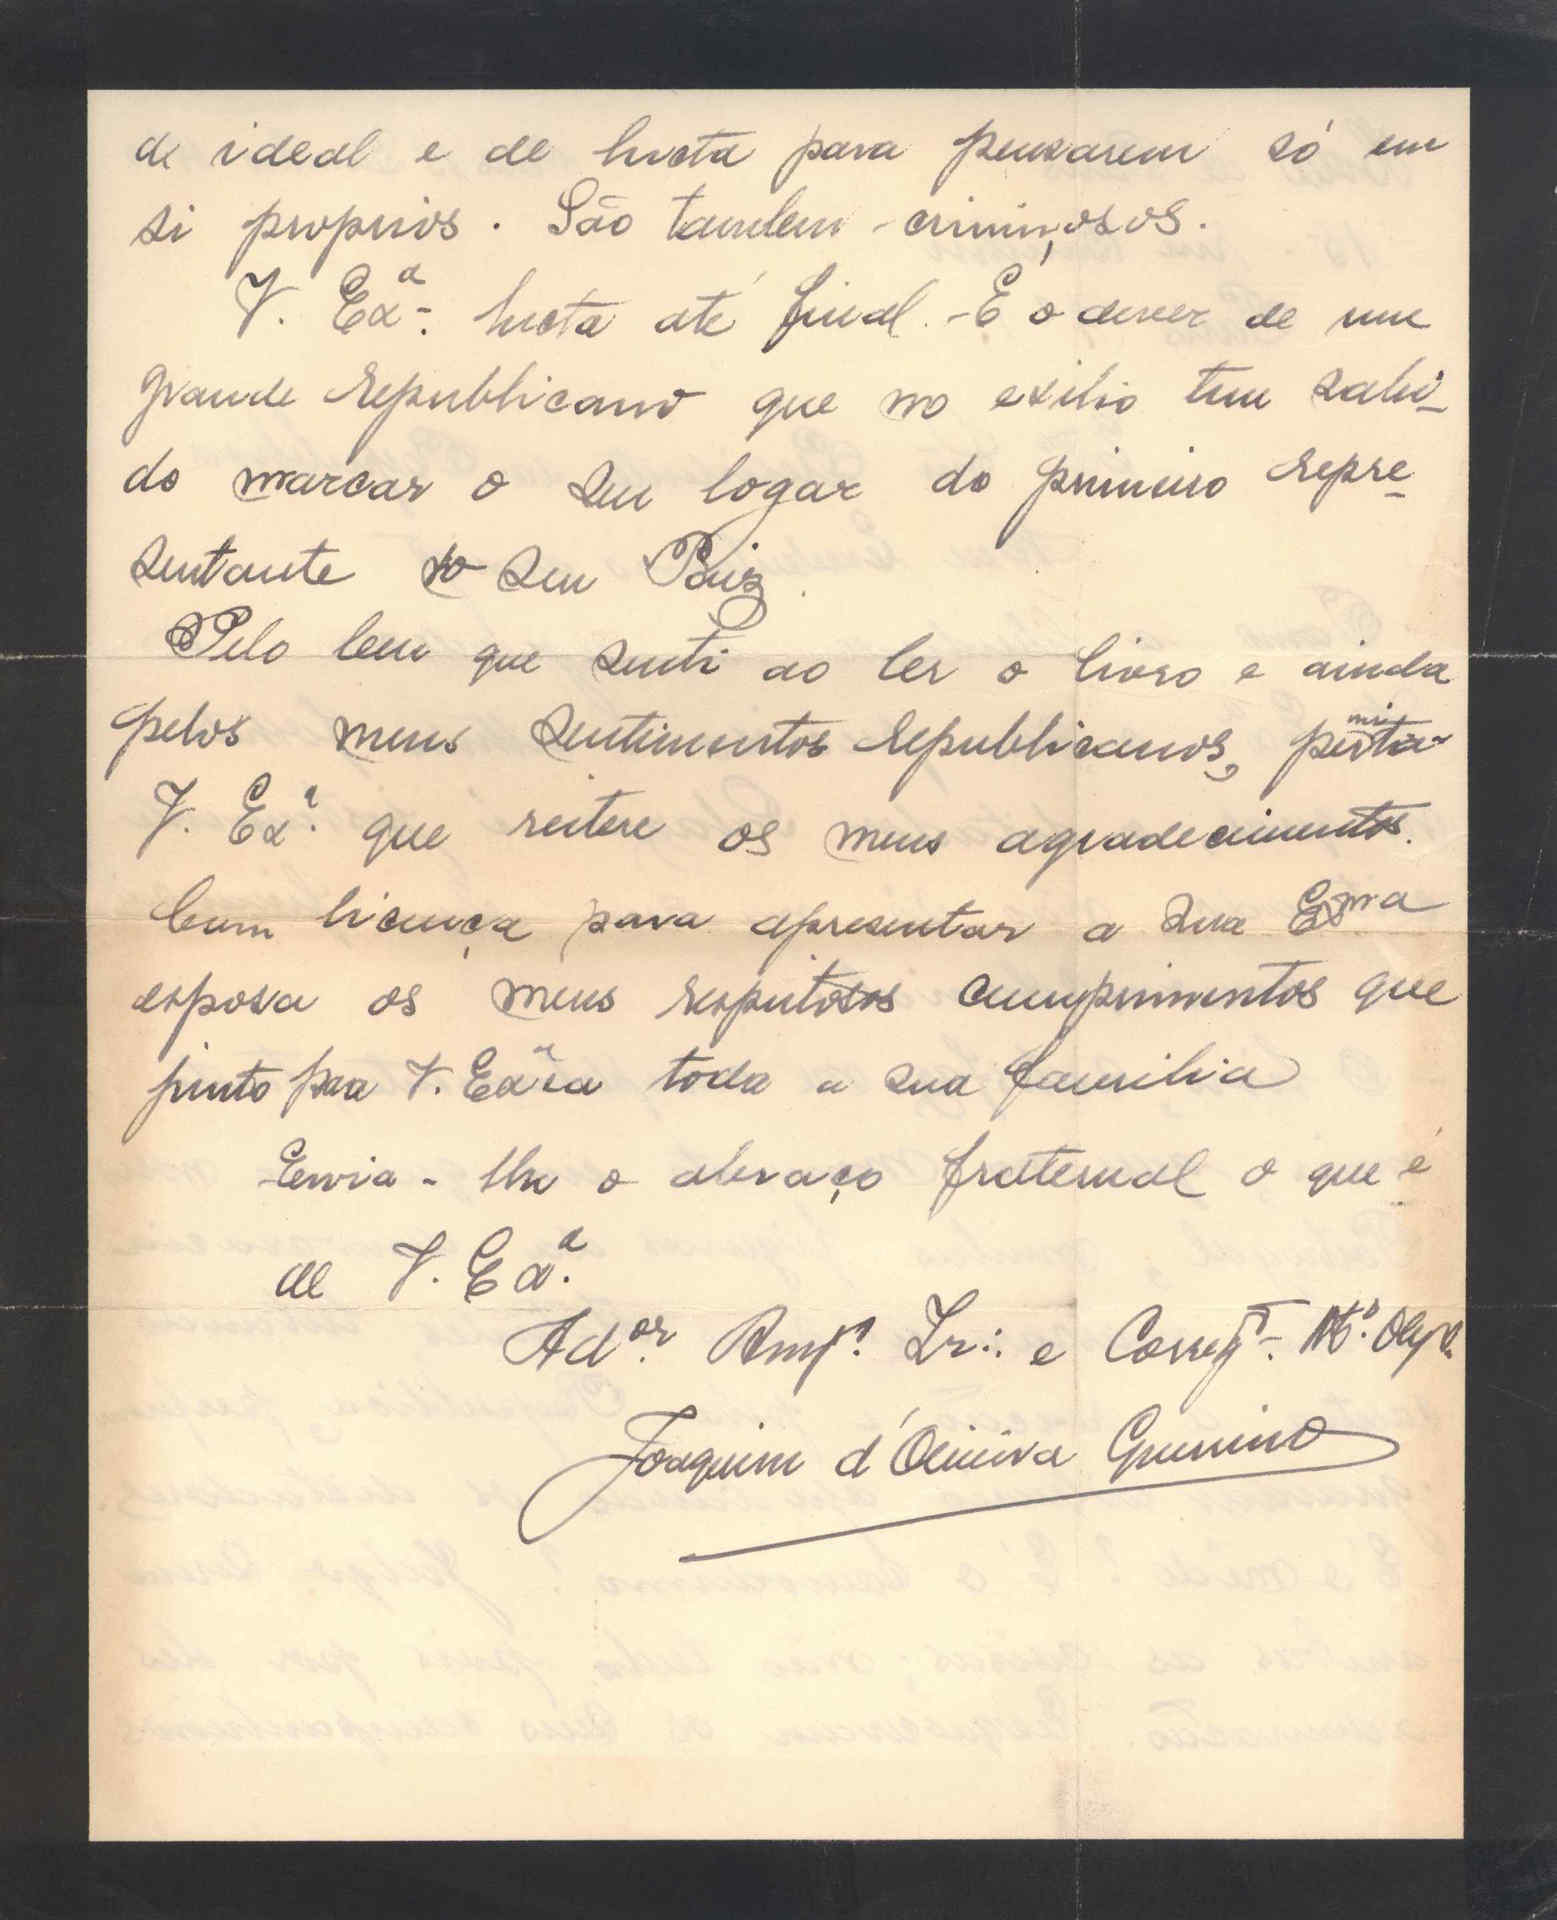 de ideal e de lucta para pensarem só em
si proprios. São tambem criminosos.
V. Exª. lucta até final. - É o dever de um
grande republicano que no exilio tem sabi-
do marcar o seu logar do primeiro repre-
sentante do seu Paiz.
Pelo bem que senti ao ler o livro e ainda
pelos meus sentimentos republicanos, permita
V. Exª. que reitere os meus agradecimentos.
Com licença para apresentar a sua Exma
esposa os meus respeitosos cumprimentos que
junto para V. Exª e a toda a sua familia
Envia-lhe o abraço fraternal o que é
de V. Exª.
Ador. Ir∴ e
Joaquim d'Oliveira